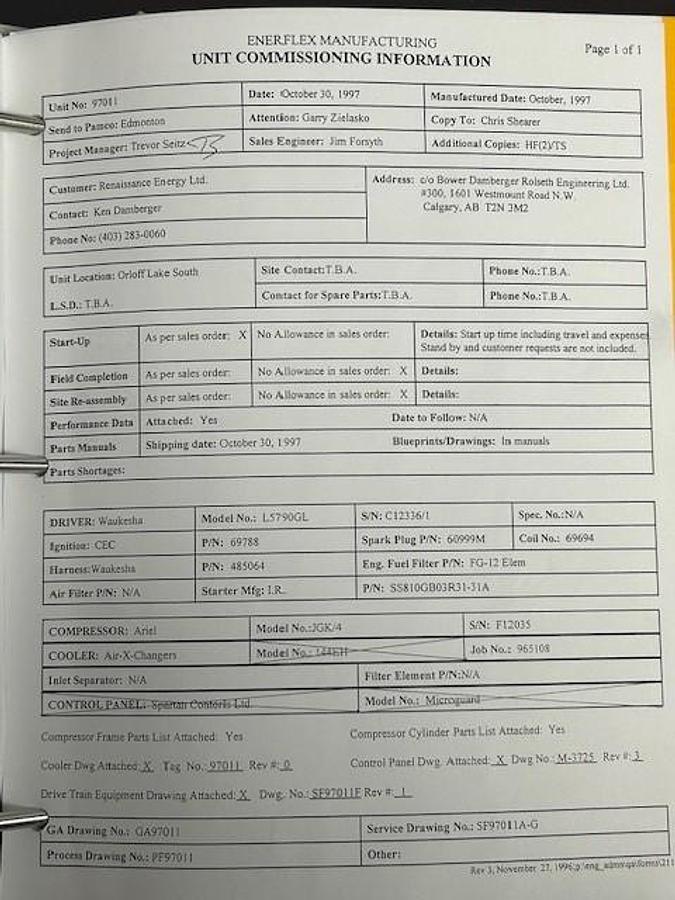 ENERFLEX MANUFACTURING
UNIT COMMISSIONING INFORMATION
Page 1 of 1
Unit No: 97011 Date: October 30, 1997 Manufactured Date: October, 1997
Send to Pamco: Edmonton Attention: Garry Zielasko Copy To: Chris Shearer
Project Manager: Trevor Seitz Sales Engineer: Jim Forsyth Additional Copies: HF(2)/TS
Customer: Renaissance Energy Ltd. Address: c/o Bower Damberger Rolseth Engineering Ltd.
#300, 1601 Westmount Road N.W.
Contact: Ken Damberger Calgary, AB T2N 3M2
Phone No: (403) 283-0060
Unit Location: Orloff Lake South Site Contact:T.B.A. Phone No.:T.B.A.
L.S.D.: T.B.A. Contact for Spare Parts:T.B.A. Phone No.:T.B.A.
Start-Up As per sales order: X No Allowance in sales order: Details: Start up time including travel and expenses
Stand by and customer requests are not included.
Field Completion As per sales order: No Allowance in sales order: X Details:
Site Re-assembly As per sales order: No Allowance in sales order: X Details:
Performance Data Attached: Yes Date to Follow: N/A
Parts Manuals Shipping date: October 30, 1997 Blueprints/Drawings: In manuals
Parts Shortages:
DRIVER: Waukesha Model No.: L5790GL S/N: C12336/1 Spec. No.:N/A
Ignition: CEC P/N: 69788 Spark Plug P/N: 60999M Coil No.: 69694
Harness:Waukesha P/N: 485064 Eng. Fuel Filter P/N: FG-12 Elem
Air Filter P/N: N/A Starter Mfg: I.R. P/N: SS810GB03R31-31A
COMPRESSOR: Ariel Model No.:JGK/4 S/N: F12035
COOLER: Air-X-Changers Model No.: 144EH Job No.: 965108
Inlet Separator: N/A Filter Element P/N:N/A
CONTROL PANEL: Spartan Controls Ltd. Model No.: Microguard
Compressor Frame Parts List Attached: Yes Compressor Cylinder Parts List Attached: Yes
Cooler Dwg Attached: X Tag No.: 97011 Rev #: 0 Control Panel Dwg. Attached: X Dwg No.: M-3725 Rev #: 3
Drive Train Equipment Drawing Attached: X Dwg. No.: SF97011F Rev #: 1
GA Drawing No.: GA97011 Service Drawing No.: SF97011A-G
Process Drawing No.: PF97011 Other:
Rev 3, November 27, 1996